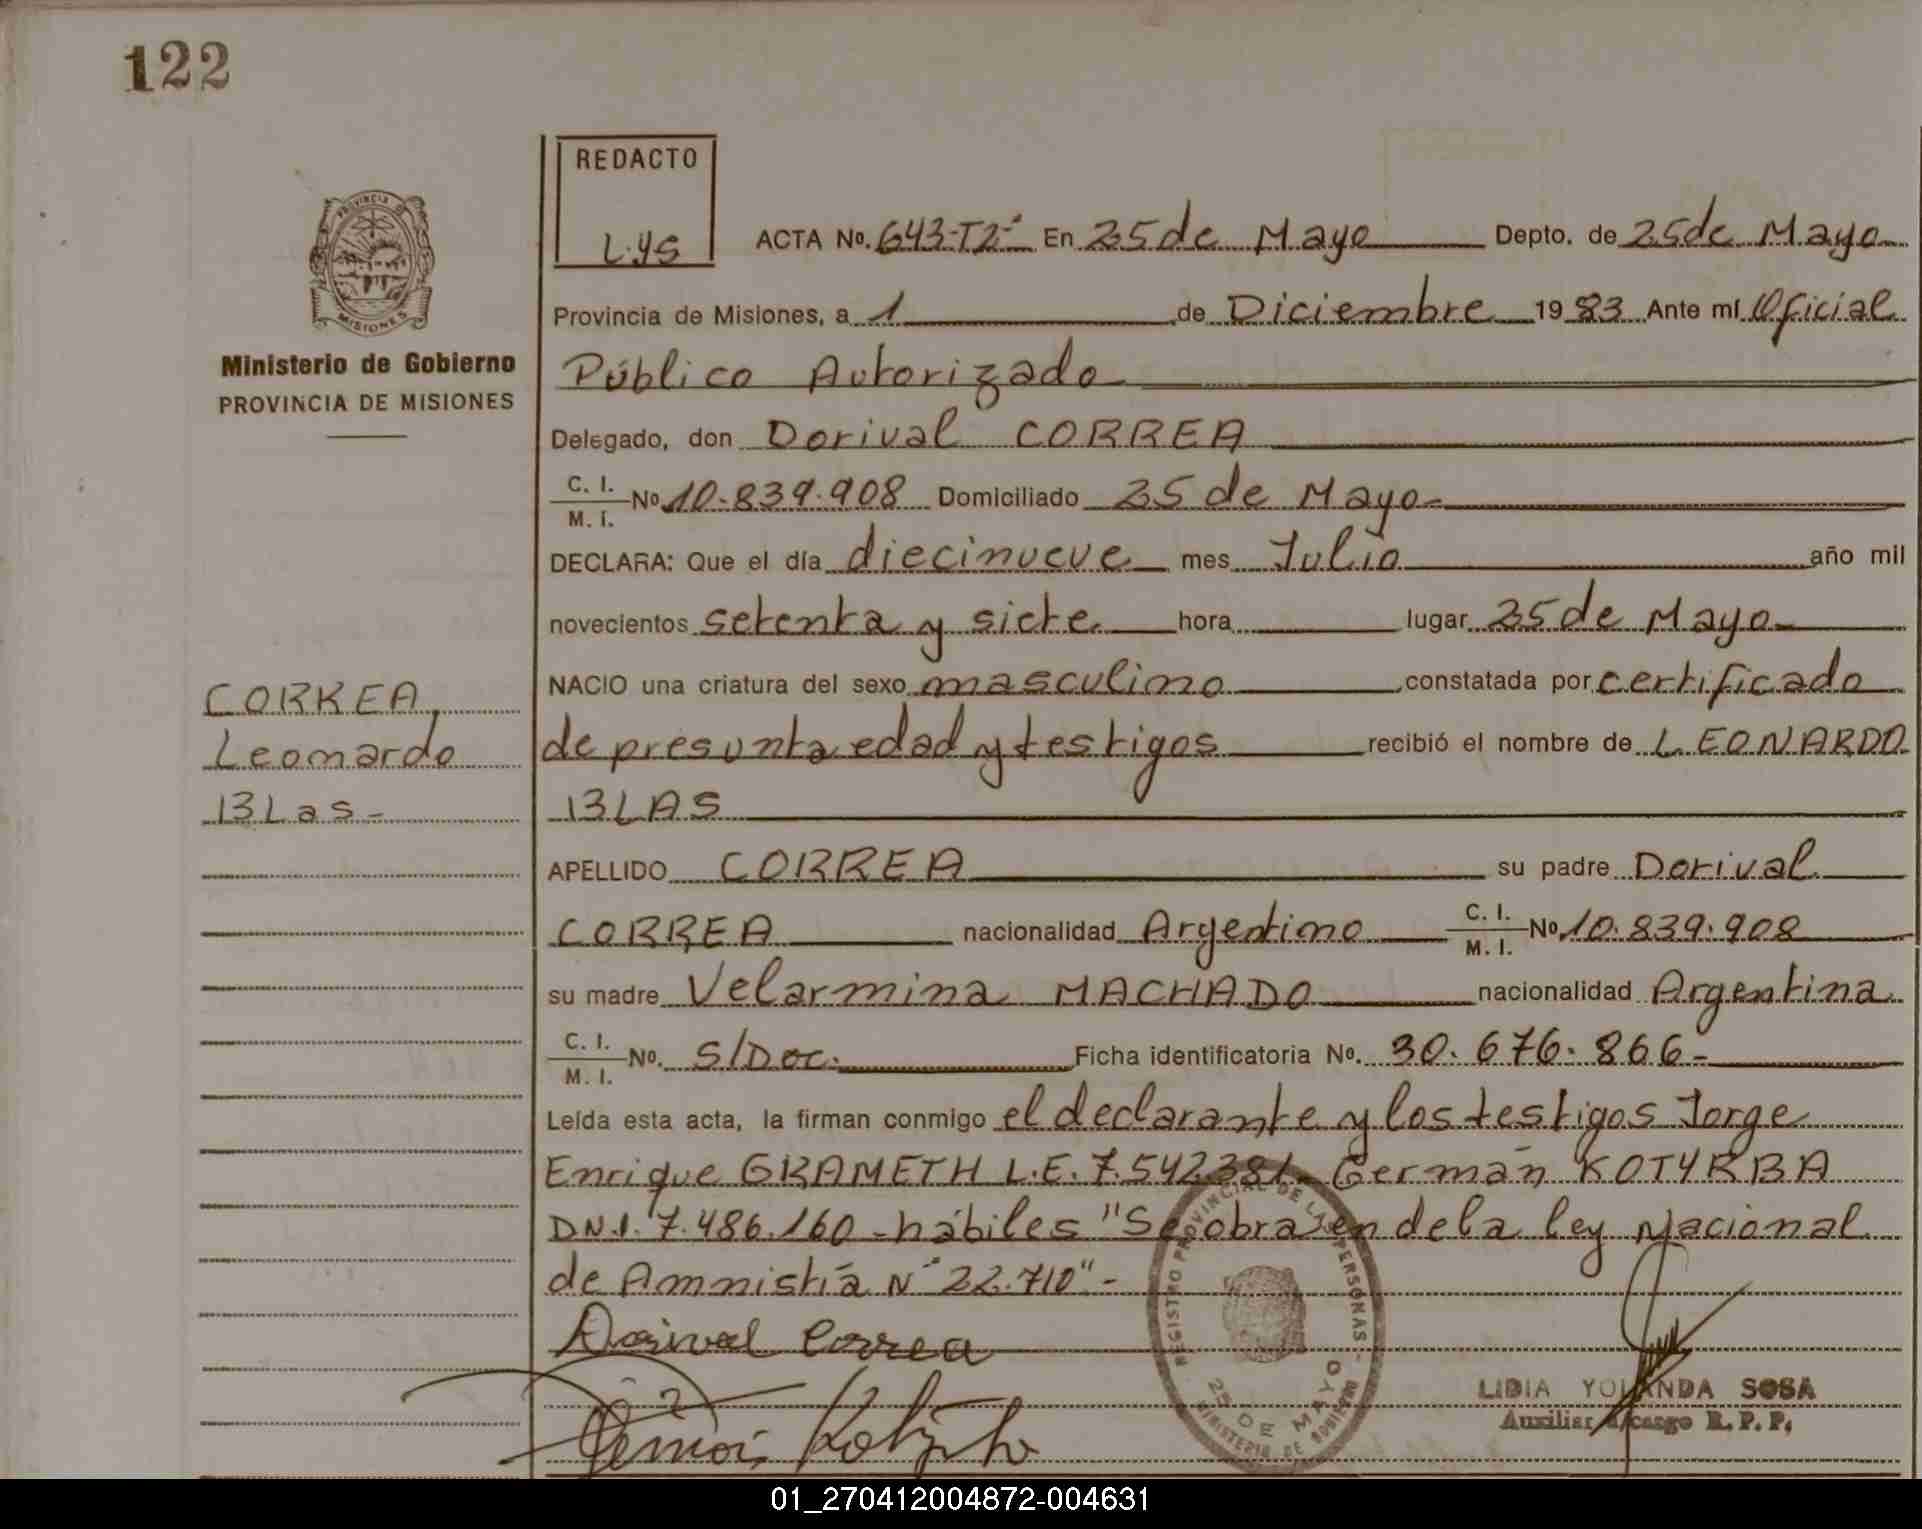 122
REDACTO
L.Y.S
ACTA No. 643-T2º En 25 de Mayo Depto. de 25 de Mayo
PROVINCIA DE MISIONES
Provincia de Misiones, a 1 de Diciembre 1983 Ante mí Oficial
Ministerio de Gobierno
Público Autorizado
PROVINCIA DE MISIONES
Delegado, don Dorival CORREA
C. I. M. I. No. 10.839.908 Domiciliado 25 de Mayo-
DECLARA: Que el día diecinueve mes Julio año mil
novecientos setenta y siete hora lugar 25 de Mayo-
NACIO una criatura del sexo masculino constatada por certificado
CORREA,
Leonardo
de presunta edad y testigos recibió el nombre de LEONARDO
Blas-
BLAS
APELLIDO CORREA su padre Dorival
CORREA nacionalidad Argentino C. I. M. I. No. 10.839.908
su madre Velarmina MACHADO nacionalidad Argentina
C. I. M. I. No. S/Doc. Ficha identificatoria No. 30.676.866-
Leída esta acta, la firman conmigo el declarante y los testigos Jorge
Enrique GRAMETH L.E. 7.542.381 Germán KOTYRBA
D.N.I. 7.486.160 - hábiles "Se obra en de la ley Nacional
de Amnistía Nº 22.710"-
Dorival Correa
REGISTRO PROVINCIAL DE LAS PERSONAS -
25 DE MAYO
MINISTERIO DE GOBIERNO
LIDIA YOLANDA SOSA
Auxiliar a/cargo R. P. P.
01_270412004872-004631